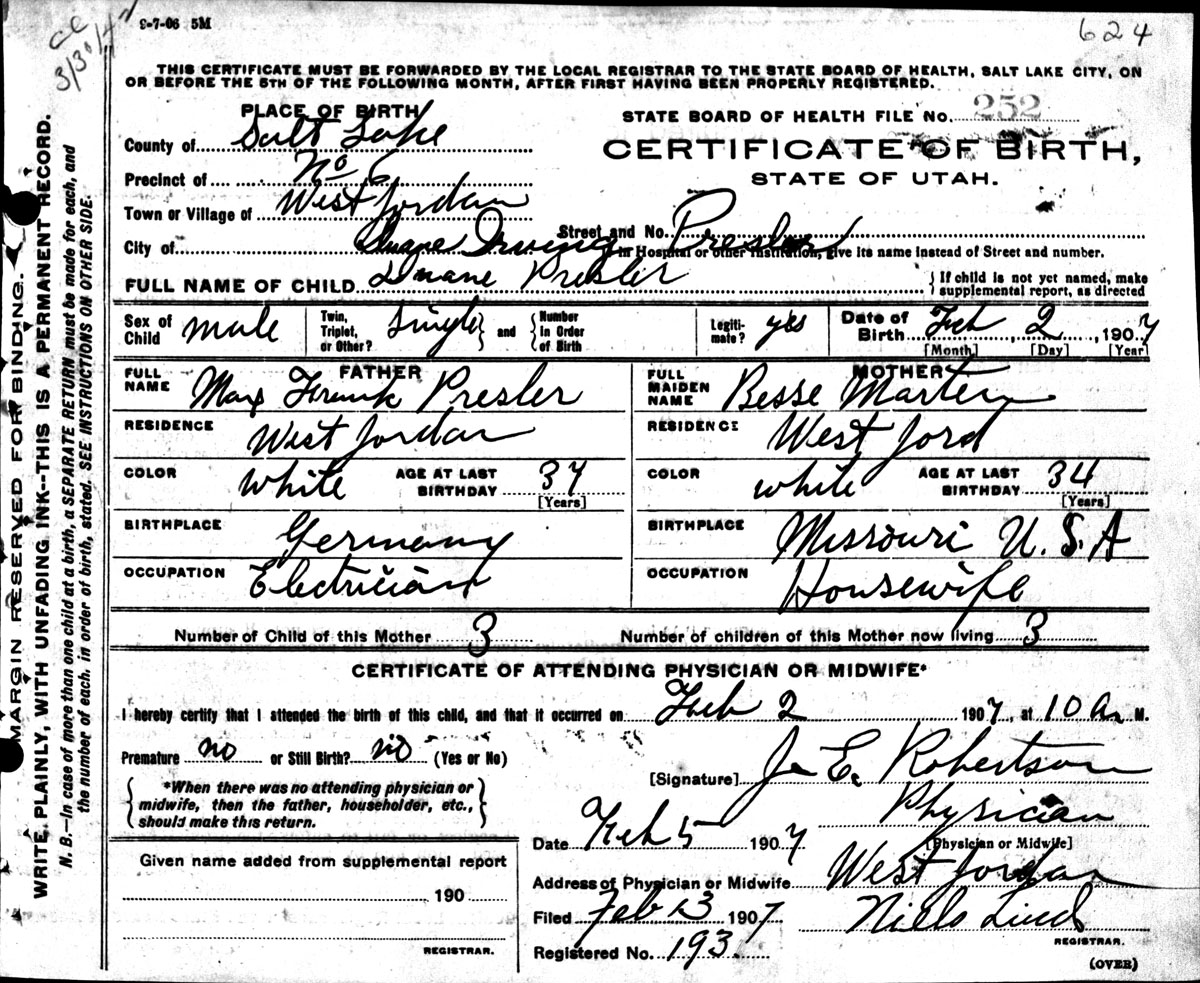 9-7-06 5M
624
THIS CERTIFICATE MUST BE FORWARDED BY THE LOCAL REGISTRAR TO THE STATE BOARD OF HEALTH, SALT LAKE CITY, ON
OR BEFORE THE 5TH OF THE FOLLOWING MONTH, AFTER FIRST HAVING BEEN PROPERLY REGISTERED.
PLACE OF BIRTH
STATE BOARD OF HEALTH FILE No. 252
County of Salt Lake
CERTIFICATE OF BIRTH,
STATE OF UTAH.
Precinct of No 6
Town or Village of West Jordan
Street and No.
City of
Duane Irving Presler
If in Hospital or other Institution, give its name instead of Street and number.
FULL NAME OF CHILD Duane Presler
{If child is not yet named, make
supplemental report, as directed
Sex of Child male
Twin, Triplet, or Other? Single} and {Number In Order of Birth
Legitimate? yes
Date of Birth Feb 2, 1907
[Month] [Day] [Year]
FATHER
FULL NAME Max Frank Presler
RESIDENCE West Jordan
COLOR white AGE AT LAST BIRTHDAY 37
[Years]
BIRTHPLACE Germany
OCCUPATION Electrician
MOTHER
FULL MAIDEN NAME Besse Marten
RESIDENCE West Jord
COLOR white AGE AT LAST BIRTHDAY 34
[Years]
BIRTHPLACE Missouri U.S.A
OCCUPATION Housewife
Number of Child of this Mother 3
Number of children of this Mother now living 3
CERTIFICATE OF ATTENDING PHYSICIAN OR MIDWIFE*
I hereby certify that I attended the birth of this child, and that it occurred on Feb 2 1907, at 10 a M.
Premature no or Still Birth? no (Yes or No)
{*When there was no attending physician or
midwife, then the father, householder, etc.,
should make this return.}
[Signature] J. E. Robertson
Physician
[Physician or Midwife]
Date Feb 5 1907
Address of Physician or Midwife West Jordan
Filed Feb 13 1907
Niels Lind
REGISTRAR.
Registered No. 193
(OVER)
Given name added from supplemental report
190
REGISTRAR.
MARGIN RESERVED FOR BINDING.
WRITE PLAINLY, WITH UNFADING INK--THIS IS A PERMANENT RECORD.
N. B.—In case of more than one child at a birth, a SEPARATE RETURN must be made for each, and
the number of each, in order of birth, stated. SEE INSTRUCTIONS ON OTHER SIDE.